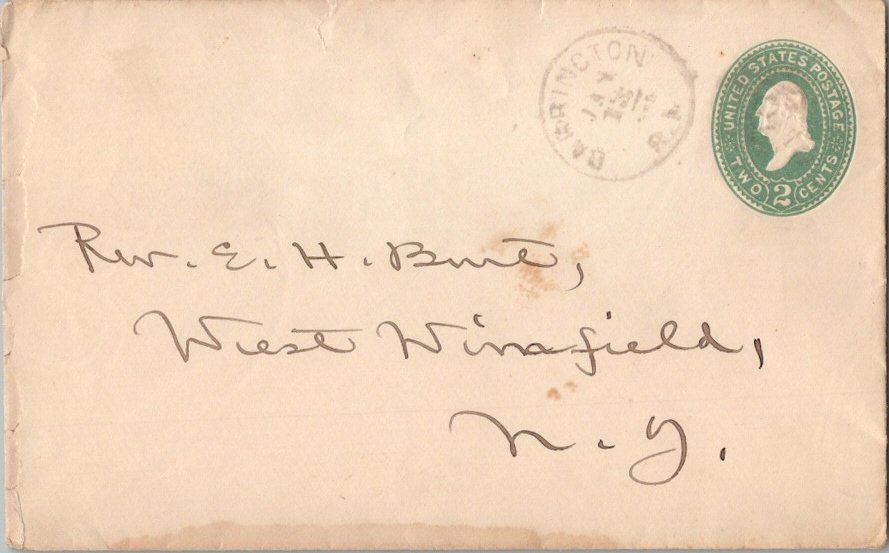 BARRINGTON
R.I.
UNITED STATES POSTAGE
TWO 2 CENTS
Rev. E. H. Burt,
West Winfield,
N. Y.